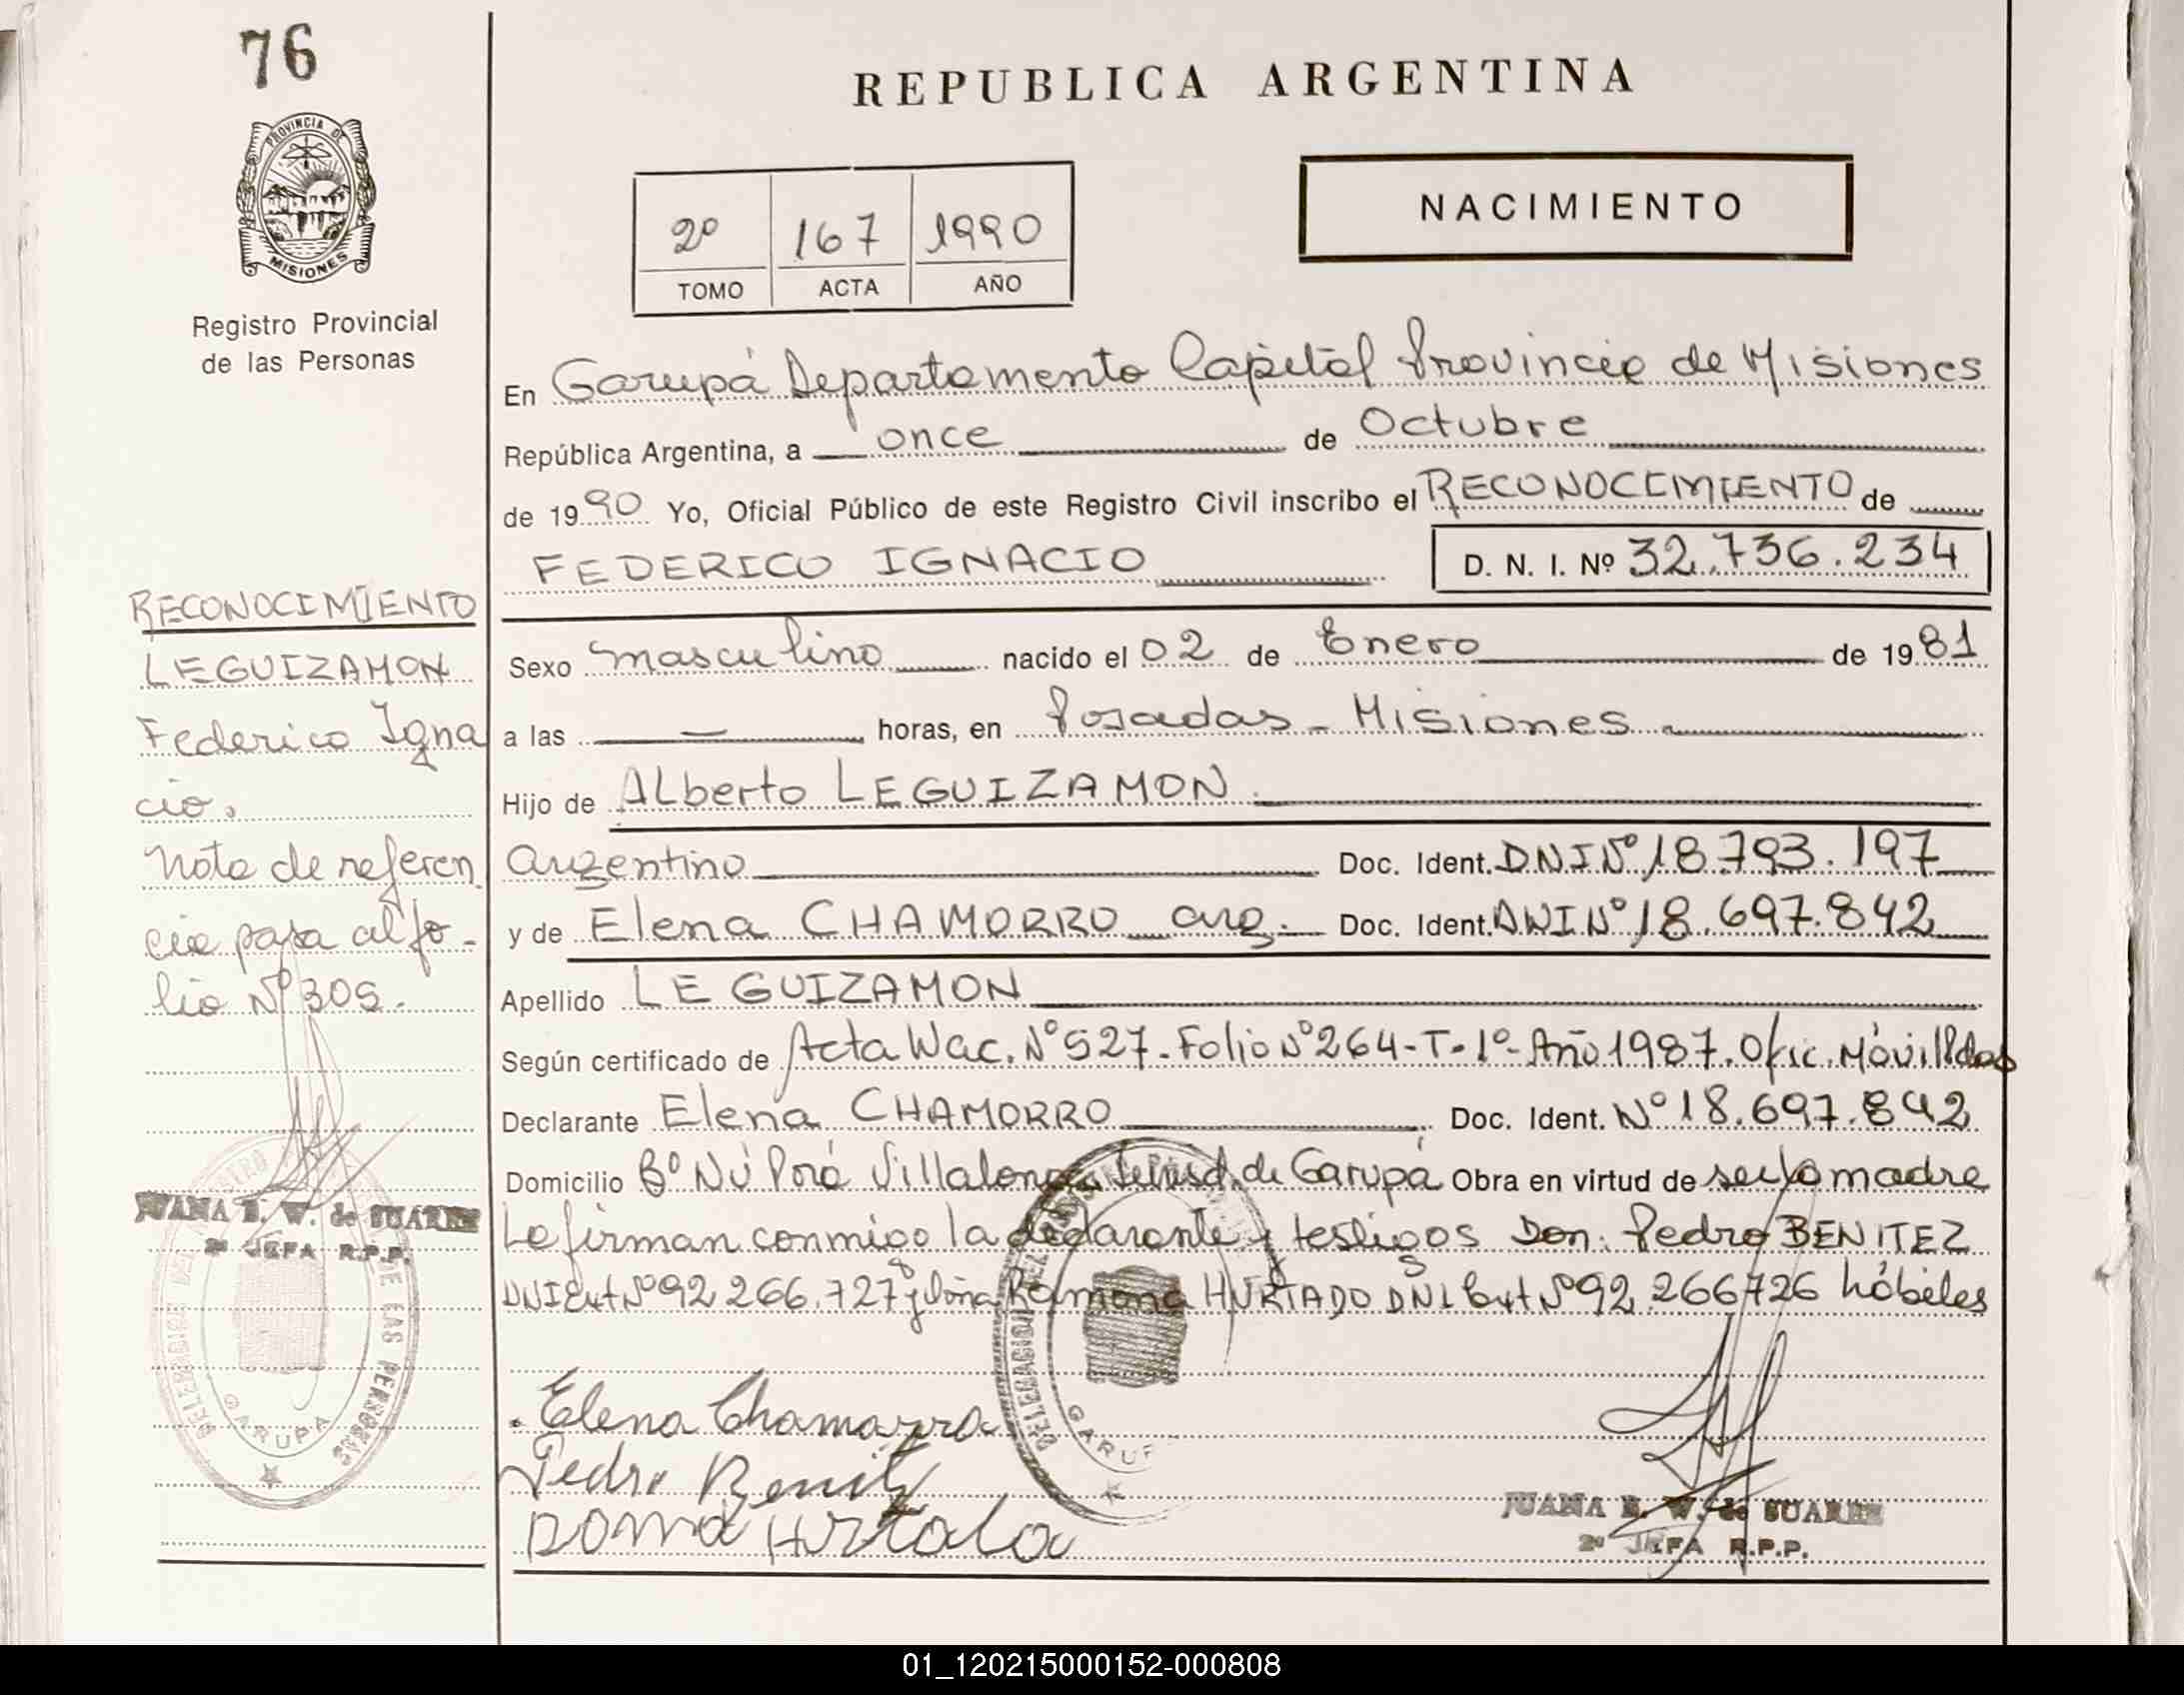 76
REPUBLICA ARGENTINA
PROVINCIA DE
MISIONES
Registro Provincial
de las Personas
2º 167 1990
TOMO ACTA AÑO
NACIMIENTO
En Garupá Departamento Capital Provincia de Misiones
República Argentina, a once de Octubre
de 1990 Yo, Oficial Público de este Registro Civil inscribo el RECONOCIMIENTO de
FEDERICO IGNACIO D. N. I. Nº 32.736.234
Sexo masculino nacido el 02 de Enero de 1981
a las — horas, en Posadas - Misiones
Hijo de Alberto LEGUIZAMON
argentino Doc. Ident. DNI Nº 18.793.197
y de Elena CHAMORRO arg. Doc. Ident. DNI Nº 18.697.842
Apellido LEGUIZAMON
Según certificado de Acta Nac. Nº 527-Folio Nº 264-T-1º-Año 1987. Ofic. Móvil Pdas
Declarante Elena CHAMORRO Doc. Ident. Nº 18.697.842
Domicilio Bº Ñú Porá Villalonga de Garupá Obra en virtud de ser la madre
Lo firman conmigo la declarante y testigos Don: Pedro BENITEZ
DNI Ext Nº 92 266.727 y Doña Ramona HURTADO DNI Ext Nº 92.266726 hábiles
Elena Chamorro
Pedro Benitez
JUANA E. W. de SUAREZ
2ª JEFA R.P.P.
GARUPA
RECONOCIMIENTO
LEGUIZAMON
Federico Igna
cio.
Nota de referen
cia pasa al fo-
lio Nº 305.
JUANA E. W. de SUAREZ
2ª JEFA R.P.P.
DE LAS PERSONAS
GARUPA
01_120215000152-000808